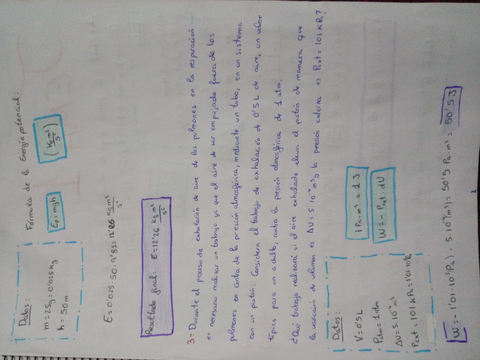 Datos:
m = 25g = 0'025 kg
h = 50m
Formula de la Energía potencial:
Ep = mgh
(kg m²/s²)
E = 0'025 · 50 · 9'81 = 12'26 kg m²/s²
Resultado final: E = 12'26 kg m²/s²
3 = Durante el proceso de exhalación de aire de los pulmones en la respiración
es necesario realizar un trabajo ya que el aire de ser empujado fuera de los
pulmones en contra de la presión atmosférica, mediante un tubo, en un sistema
con un pistón. Considera el trabajo de exhalación de 0'5 L de aire, un valor
típico para un adulto, contra la presión atmosférica de 1 atm.
¿Qué trabajo realizará si el aire exhalado eleva el pistón de manera que
la variación de volumen es ΔV = 5·10⁻⁴ m³ y la presión externa es Pext = 101 KPa?
Datos:
V = 0'5 L
Patm = 1 atm
ΔV = 5·10⁻⁴ m³
Pext = 101 KPa = 1'01·10⁵
1 Pa·m³ = 1 J
W = - Pext · dV
W = - 1'01·10⁵ (Pa) · 5·10⁻⁴ (m³) = 50'5 Pa·m³ = 50'5 J